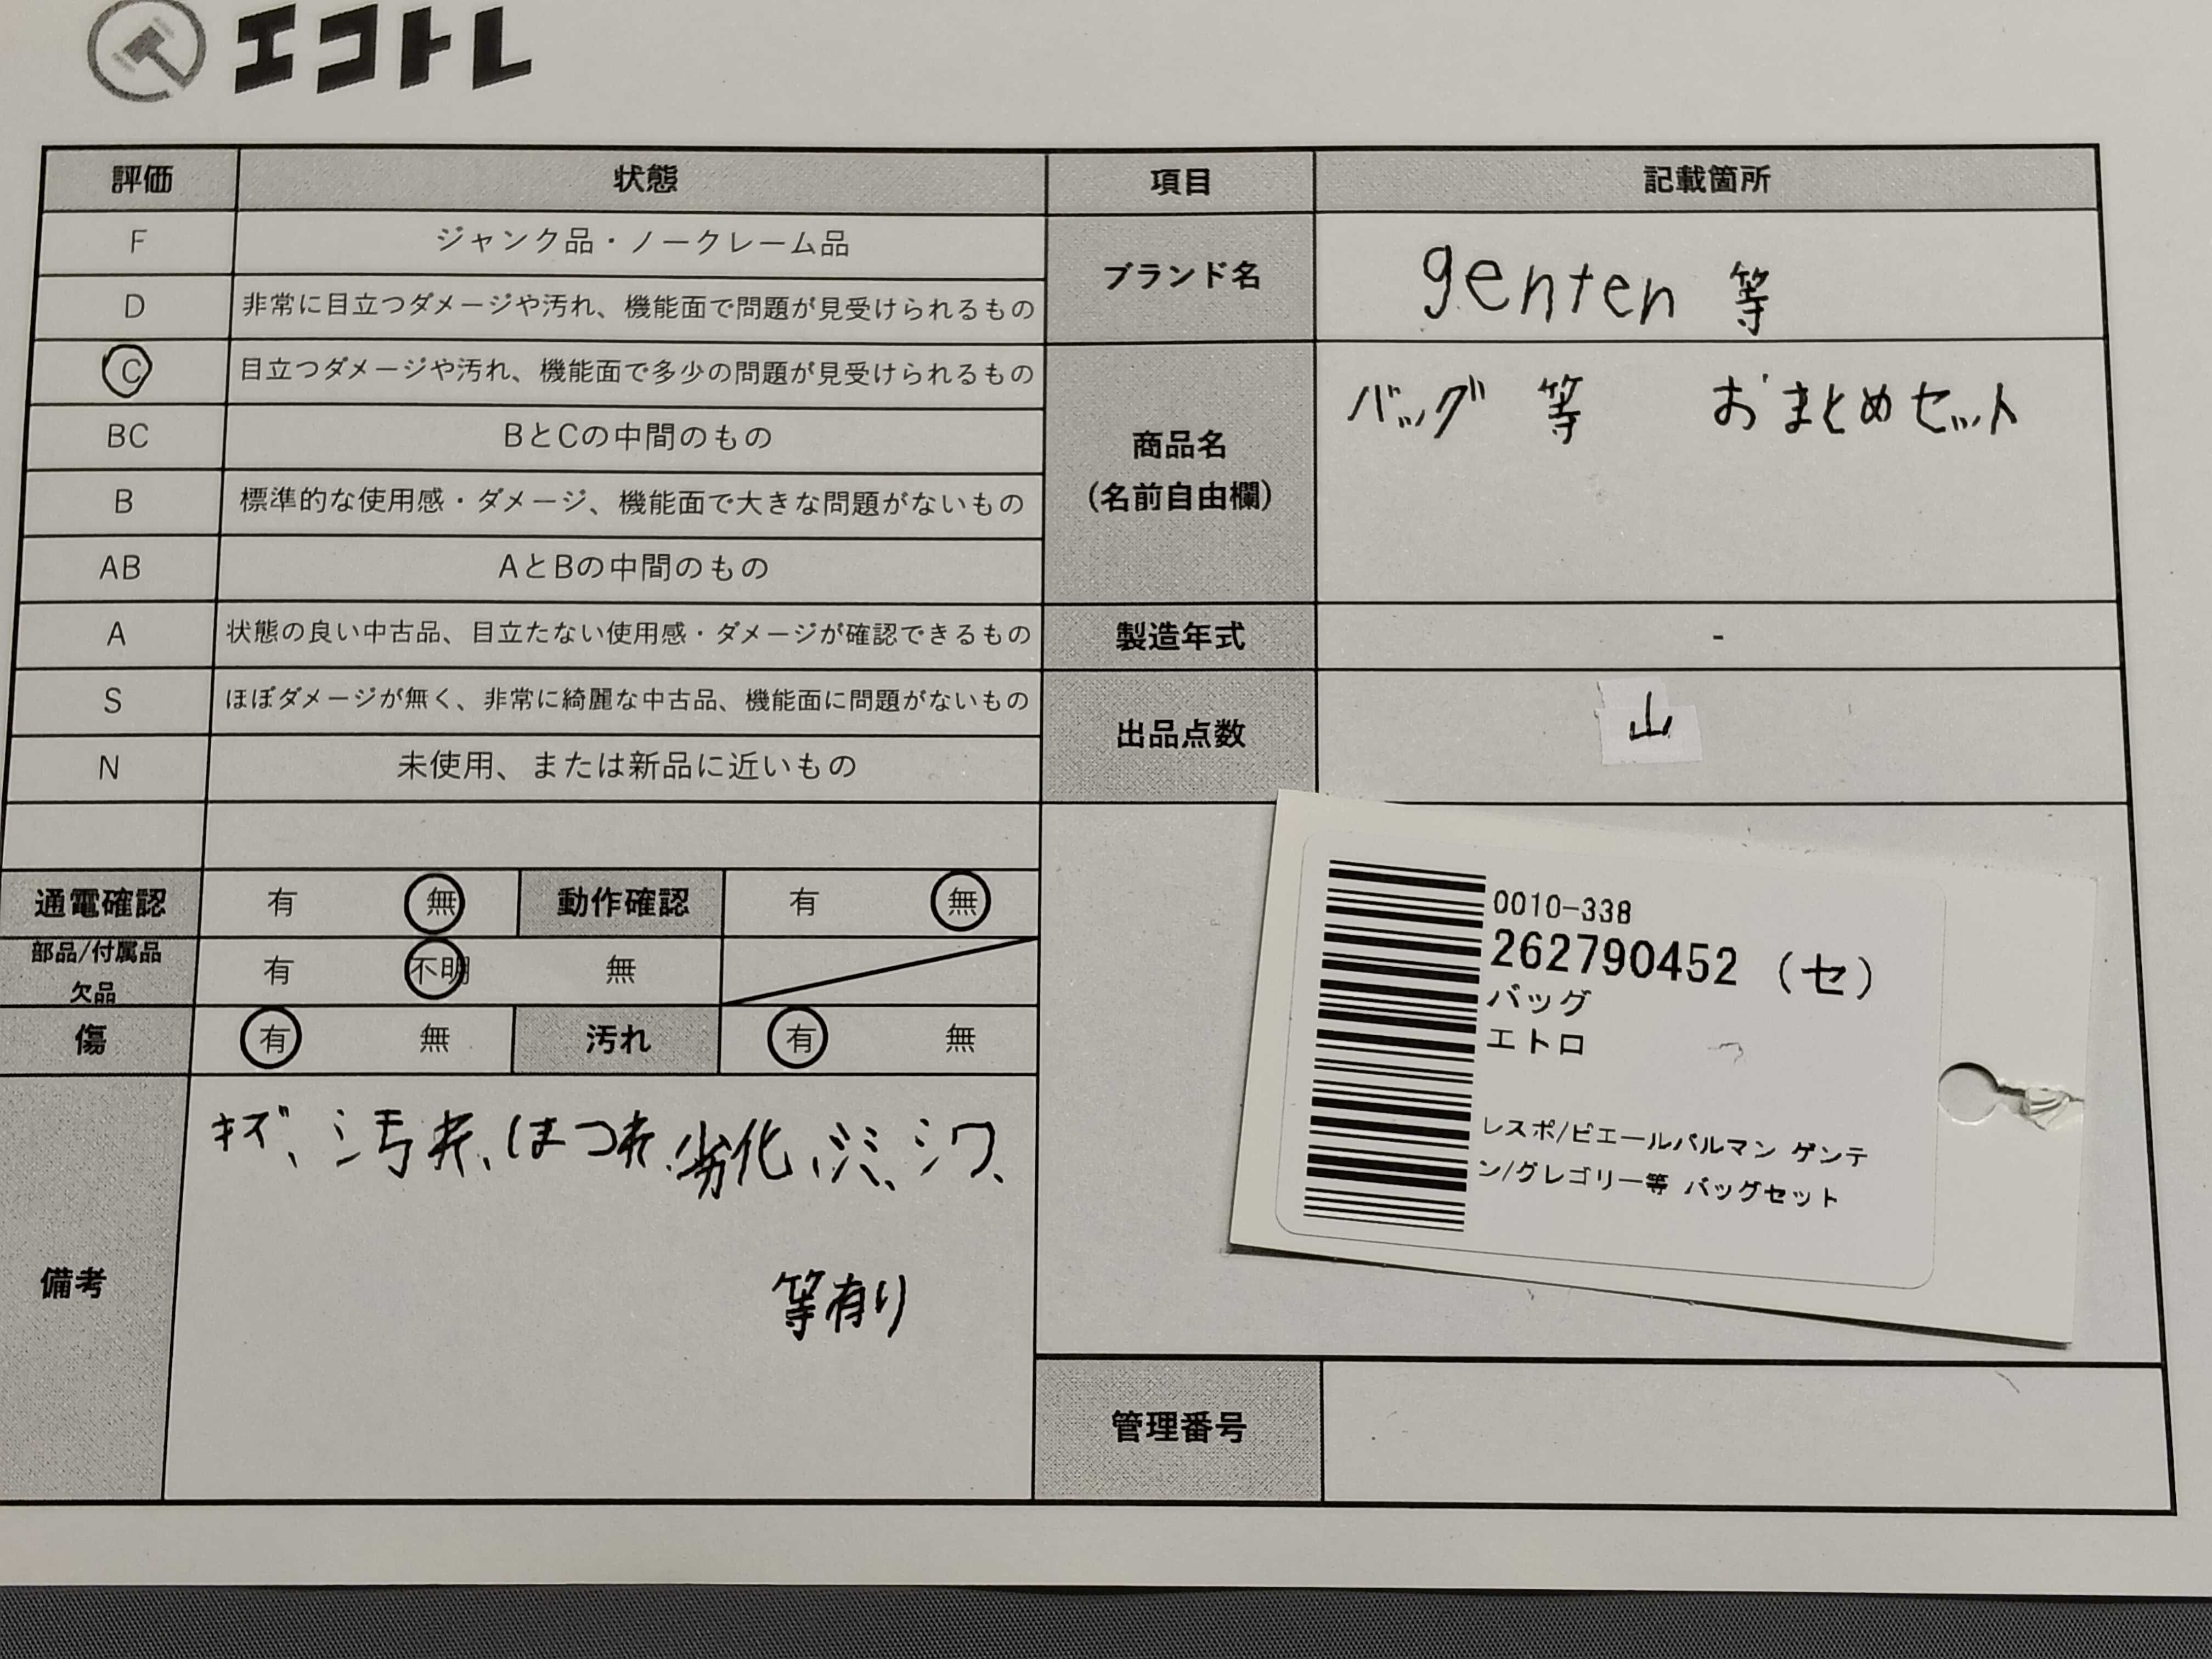 エコトレ
評価 状態 項目 記載箇所
F ジャンク品・ノークレーム品
D 非常に目立つダメージや汚れ、機能面で問題が見受けられるもの
ブランド名 genten 等
C 目立つダメージや汚れ、機能面で多少の問題が見受けられるもの
BC BとCの中間のもの
B 標準的な使用感・ダメージ、機能面で大きな問題がないもの
AB AとBの中間のもの
商品名
(名前自由欄)
バッグ 等 おまとめセット
A 状態の良い中古品、目立たない使用感・ダメージが確認できるもの
製造年式 -
S ほぼダメージが無く、非常に綺麗な中古品、機能面に問題がないもの
N 未使用、または新品に近いもの
出品点数 山
通電確認 有 無 動作確認 有 無
部品/付属品
欠品
有 不明 無
傷 有 無 汚れ 有 無
備考
キズ、汚れ、ほつれ、劣化、シミ、シワ、
等有り
0010-338
262790452 (セ)
バッグ
エトロ
レスポ/ピエールバルマン ゲンテ
ン/グレゴリー等 バッグセット
管理番号